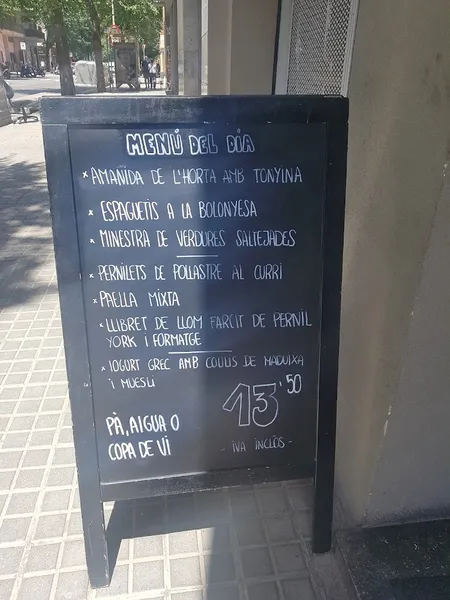 MENÚ DEL DIA
* AMANIDA DE L'HORTA AMB TONYINA
* ESPAGUETIS A LA BOLONYESA
* MINESTRA DE VERDURES SALTEJADES
* PERNILETS DE POLLASTRE AL CURRI
* PAELLA MIXTA
* LLIBRET DE LLOM FARCIT DE PERNIL
YORK I FORMATGE
* IOGURT GREC AMB COULIS DE MADUIXA
I MUESLI
13'50
PÀ, AIGUA O
COPA DE VI
- IVA INCLÒS -